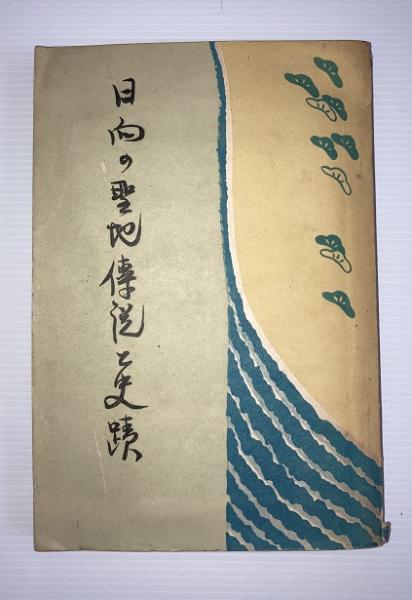 日向の聖地傳説と史蹟